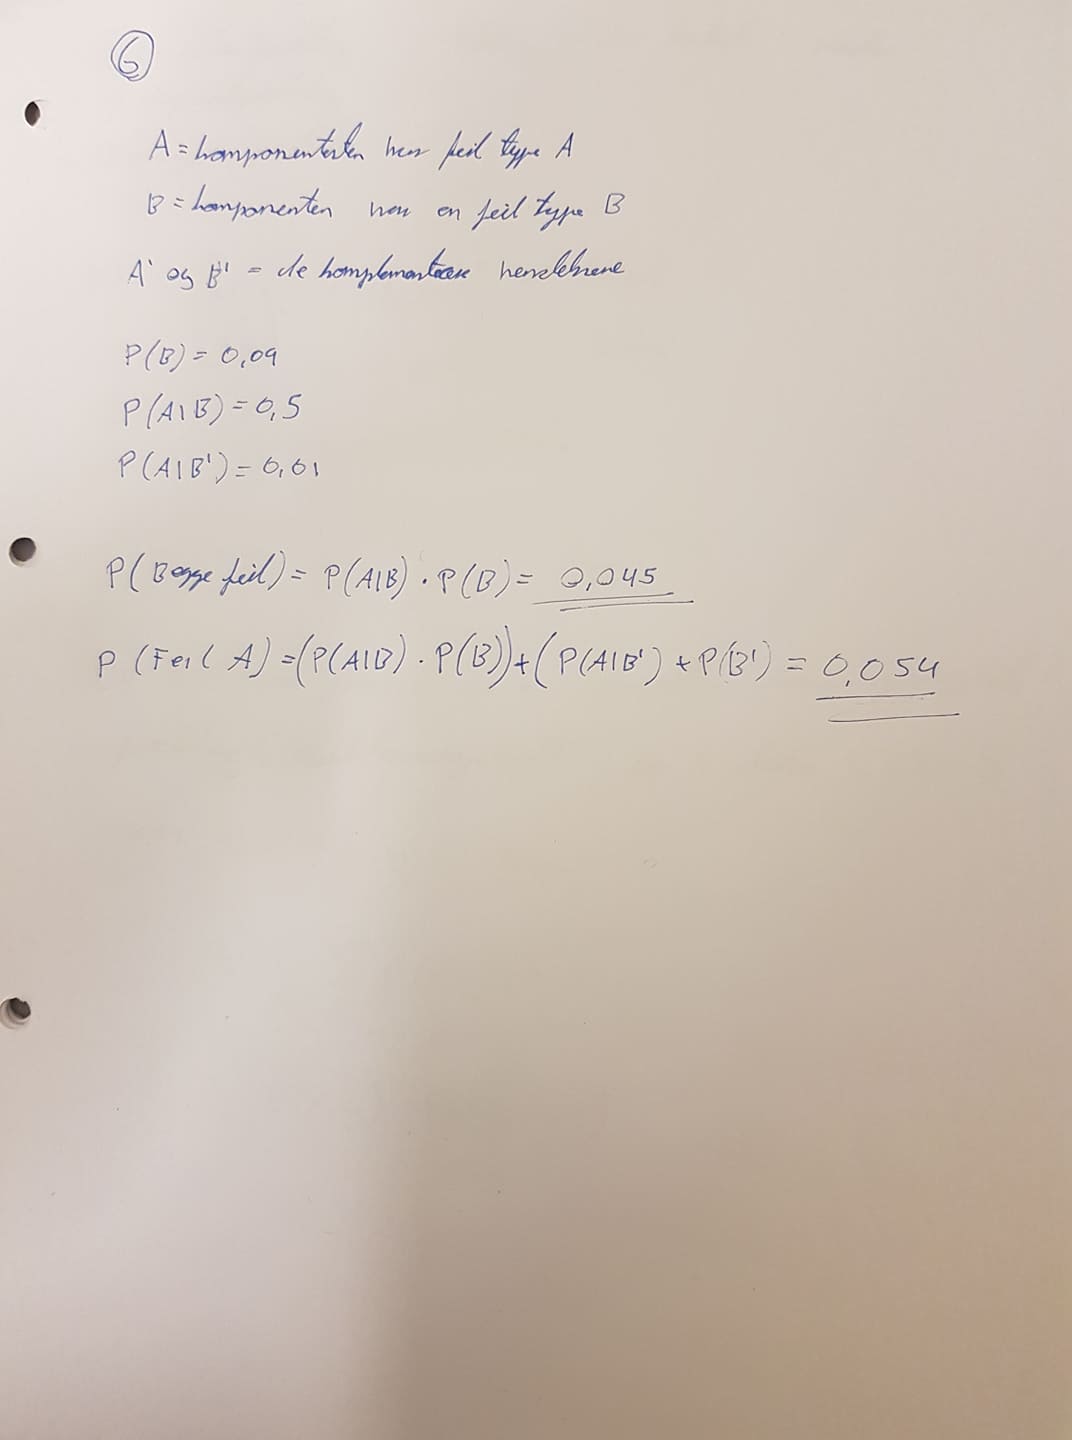 6
A = komponenten har feil type A
B = komponenten har en feil type B
A' og B' = de komplementære hendelsene
P(B) = 0,09
P(A|B) = 0,5
P(A|B') = 0,01
P(Begge feil) = P(A|B) · P(B) = 0,045
P(Feil A) = (P(A|B) · P(B)) + (P(A|B') + P(B') = 0,054